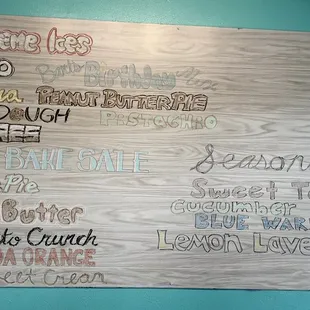 eme Ices
O
Birthday
PEANUT BUTTER PIE
DOUGH
Pistachio
REE
BAKE SALE
Season
Pie
Sweet T
CUCUMBER
Butter
BLUE WAR
to Crunch
Lemon Lave
DA ORANGE
eet Crean